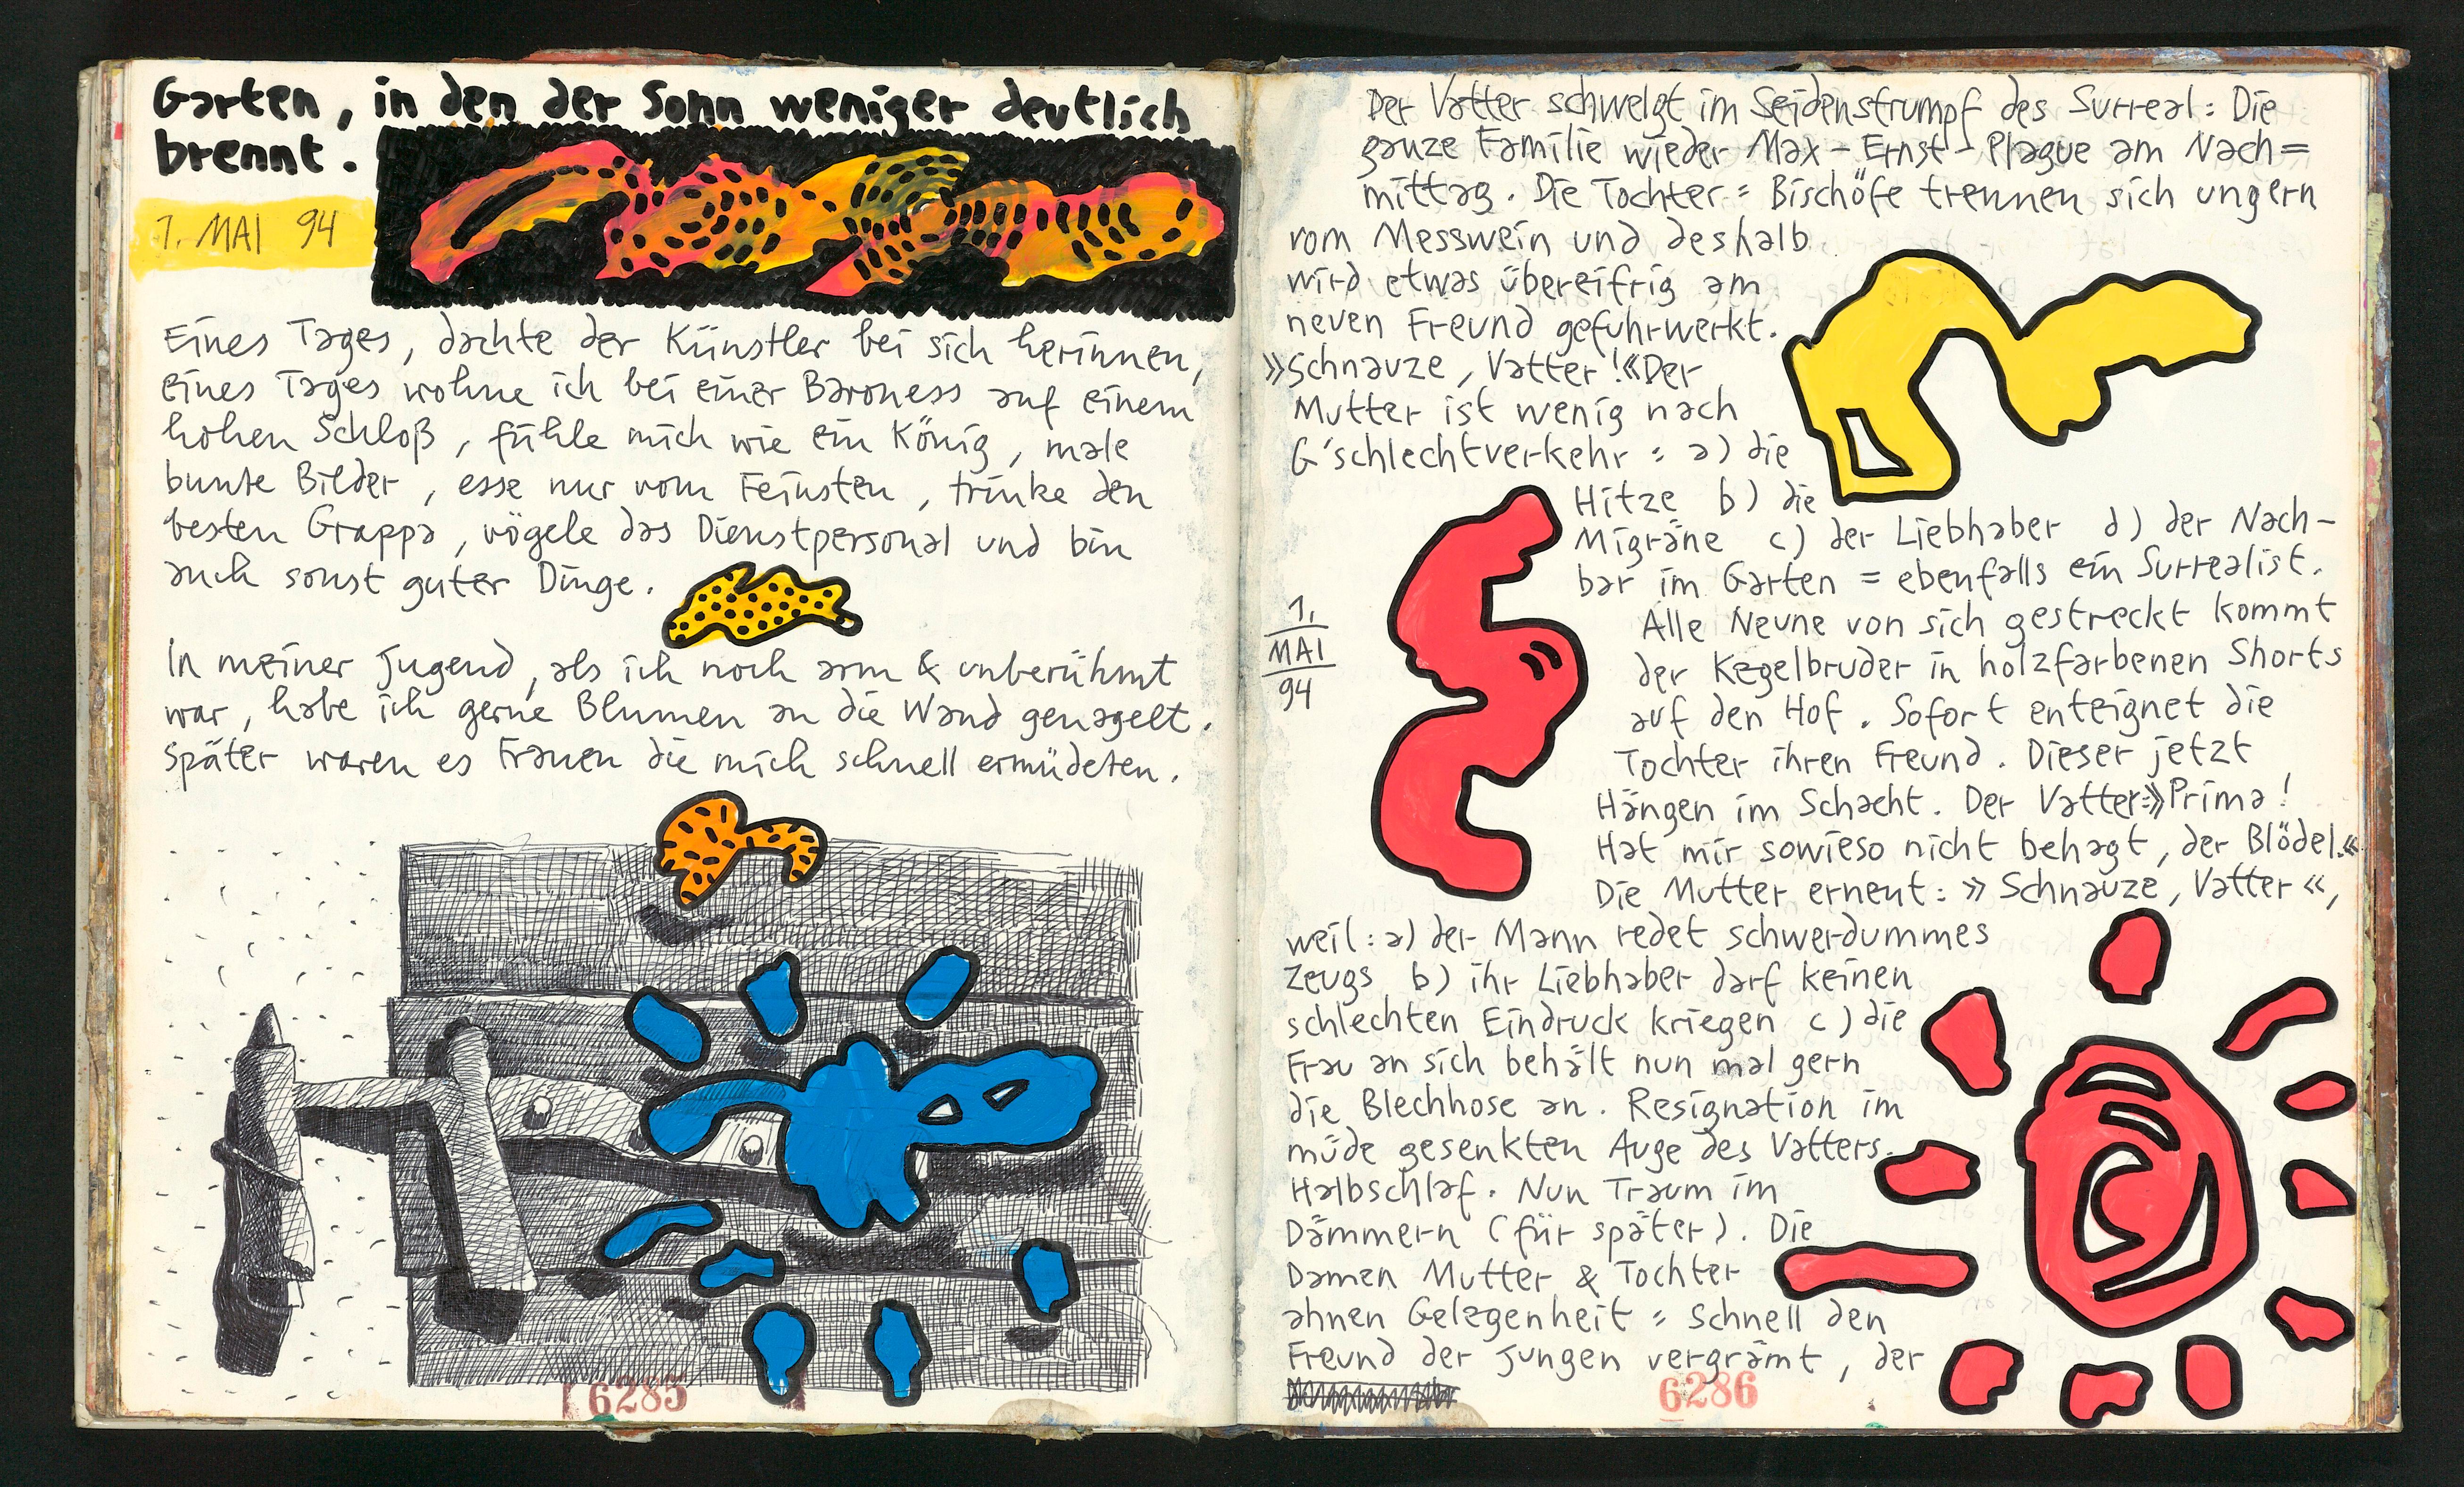 Garten, in den der Sonn weniger deutlich
brennt.
1. MAI 94
Eines Tages, dachte der Künstler bei sich herinnen,
eines Tages wohne ich bei einer Baroness auf einem
hohen Schloß, fühle mich wie ein König, male
bunte Bilder, esse nur vom Feinsten, trinke den
besten Grappa, vögele das Dienstpersonal und bin
auch sonst guter Dinge.
In meiner Jugend, als ich noch arm & unberühmt
war, habe ich gerne Blumen an die Wand genagelt.
Später waren es Frauen die mich schnell ermüdeten.
6285
Der Vatter schwelgt im Seidenstrumpf des Surreal: Die
ganze Familie wieder Max-Ernst-Plague am Nach=
mittag. Die Tochter = Bischöfe trennen sich ungern
vom Messwein und deshalb
wird etwas übereifrig am
neuen Freund gefuhrwerkt.
»Schnauze, Vatter!« Der
Mutter ist wenig nach
G'schlechtverkehr = a) die
Hitze b) die
Migräne c) der Liebhaber d) der Nach-
bar im Garten = ebenfalls ein Surrealist.
Alle Neune von sich gestreckt kommt
der Kegelbruder in holzfarbenen Shorts
auf den Hof. Sofort enteignet die
Tochter ihren Freund. Dieser jetzt
Hängen im Schacht. Der Vatter: »Prima!
Hat mir sowieso nicht behagt, der Blödel.«
Die Mutter erneut: »Schnauze, Vatter«,
weil: a) der Mann redet schwerdummes
Zeugs b) ihr Liebhaber darf keinen
schlechten Eindruck kriegen c) die
Frau an sich behält nun mal gern
die Blechhose an. Resignation im
müde gesenkten Auge des Vatters.
Halbschlaf. Nun Traum im
Dämmern (für später). Die
Damen Mutter & Tochter
ahnen Gelegenheit = schnell den
Freund der Jungen vergrämt, der
1.
MAI
94
6286